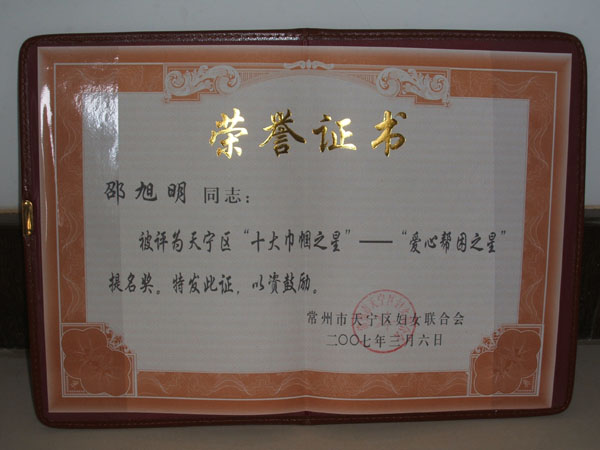 荣誉证书
邵旭明 同志：
被评为天宁区“十大巾帼之星”——“爱心帮困之星”
提名奖。特发此证，以资鼓励。
常州市天宁区妇女联合会
二〇〇七年三月六日